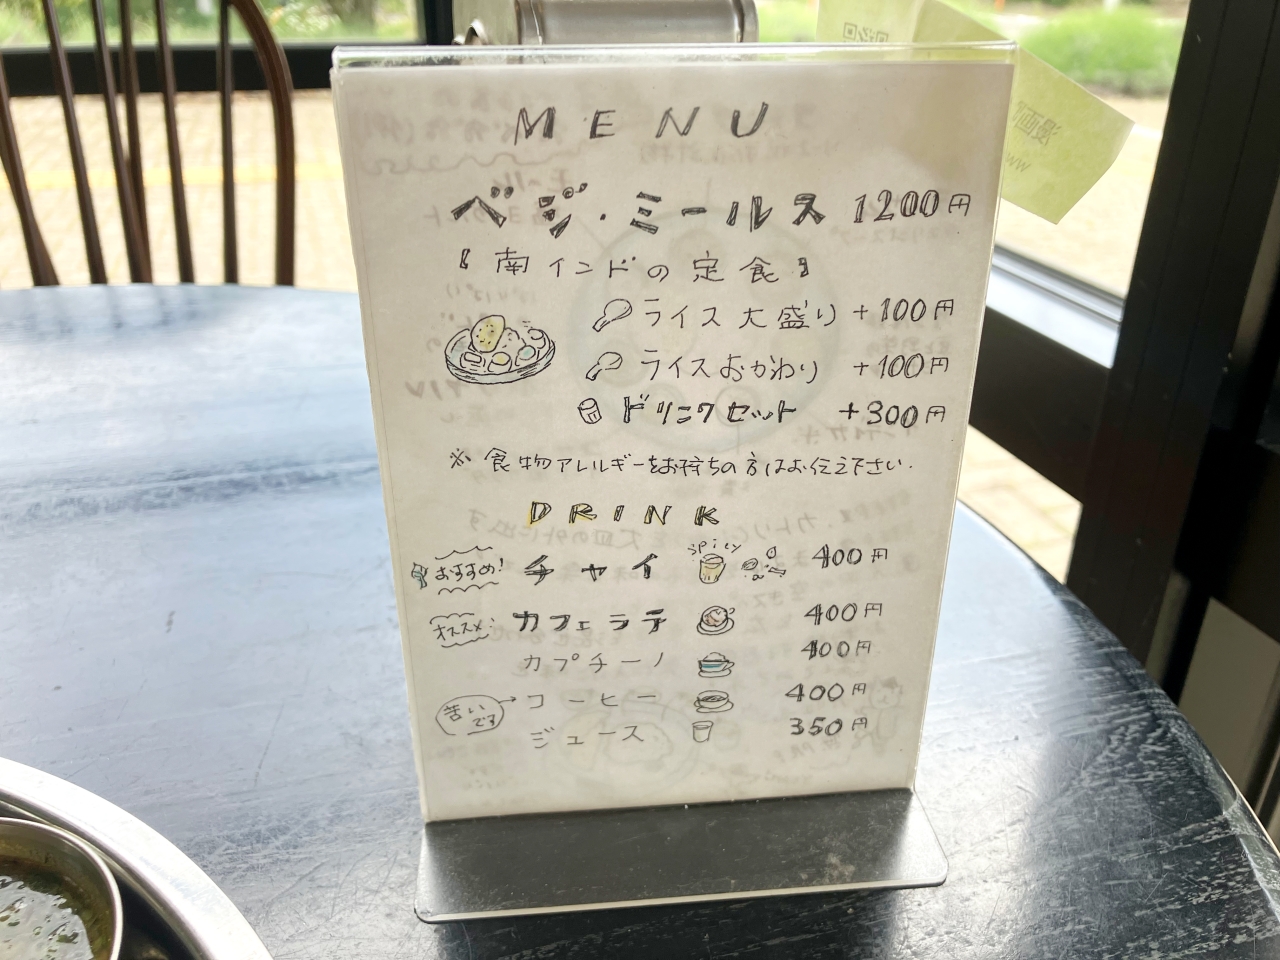 MENU
ベジ・ミールス 1200円
【南インドの定食】
ライス大盛り +100円
ライスおかわり +100円
ドリンクセット +300円
※食物アレルギーをお持ちの方はお伝え下さい.
DRINK
おすすめ! チャイ spicy 400円
オススメ! カフェラテ 400円
カプチーノ 400円
苦いです→コーヒー 400円
ジュース 350円